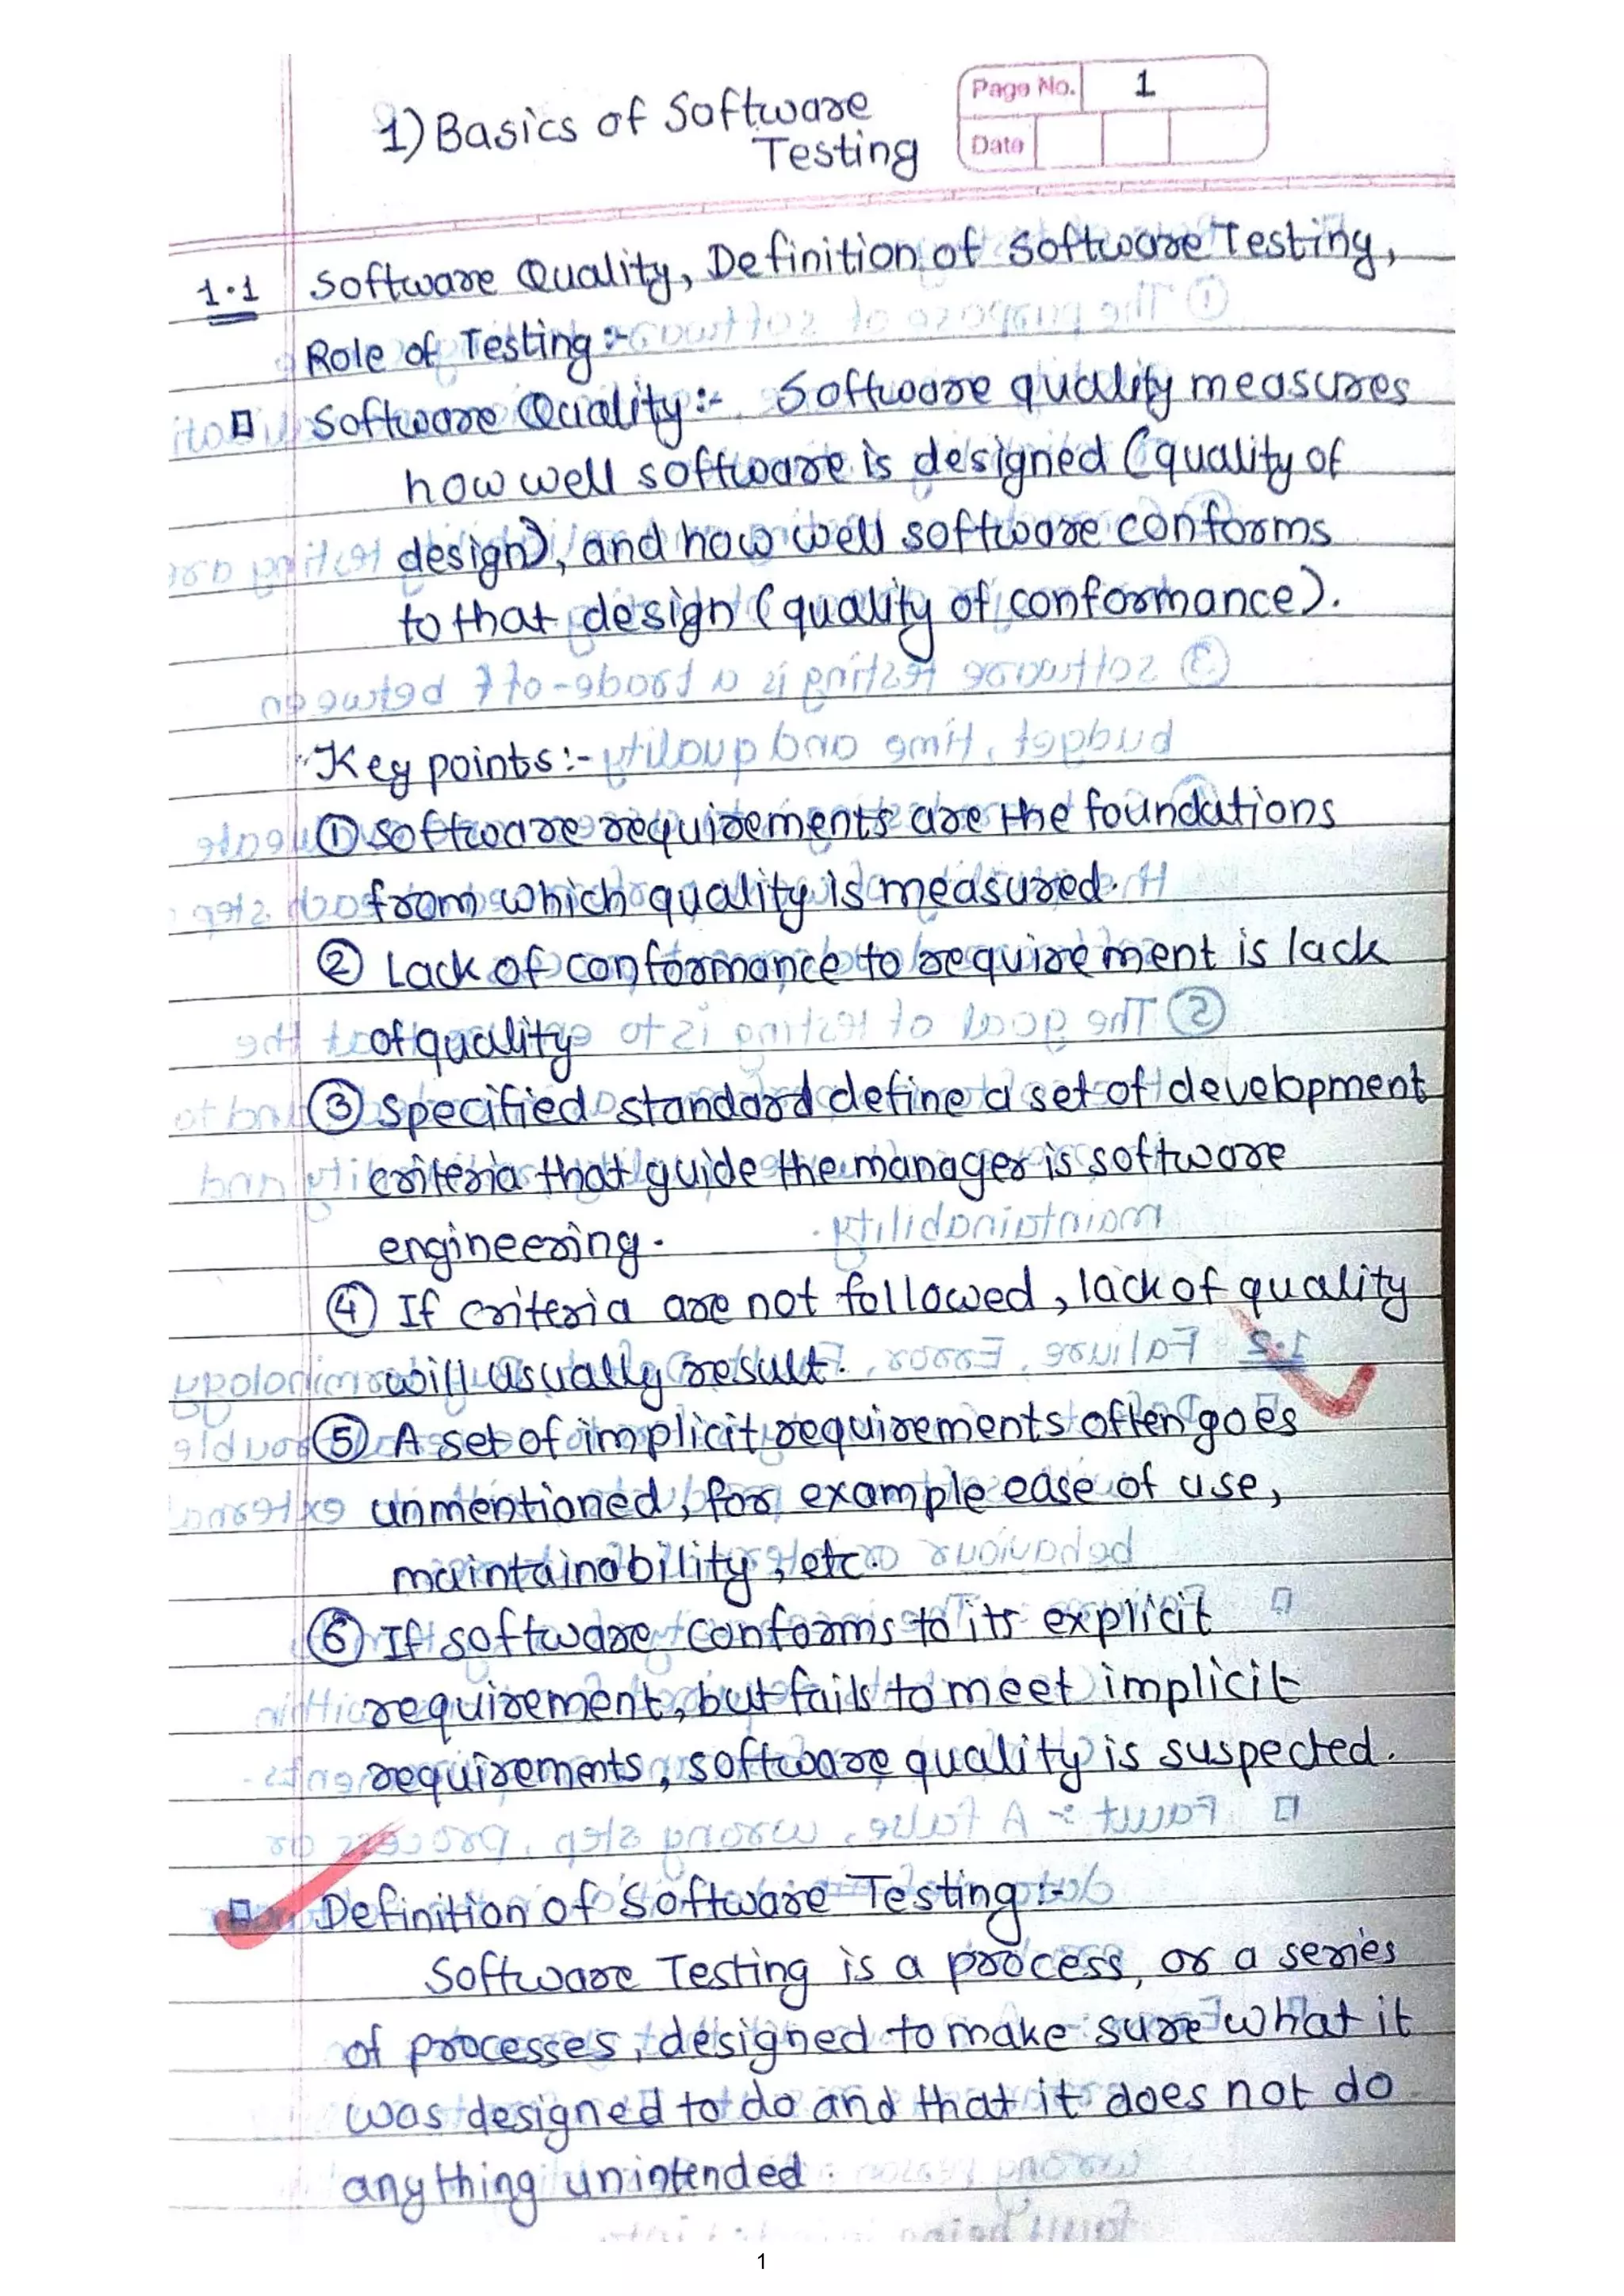 1) Basics of Software
Testing
Page No. 1
Date
1.1 Software Quality, Definition of Software Testing,
Role of Testing :-
Software Quality:- Software quality measures
how well software is designed (quality of
design), and how well software conforms
to that design (quality of conformance).
Key points:-
① Software requirements are the foundations
from which quality is measured.
② Lack of conformance to requirement is lack
of quality
③ Specified standard define a set of development
criteria that guide the manager is software
engineering.
④ If criteria are not followed, lack of quality
will usually result.
⑤ A set of implicit requirements often goes
unmentioned, for example ease of use,
maintainability, etc.
⑥ If software conforms to its explicit
requirement, but fails to meet implicit
requirements, software quality is suspected.
Definition of Software Testing :-
Software Testing is a process, or a series
of processes, designed to make sure what it
was designed to do and that it does not do
anything unintended.
1